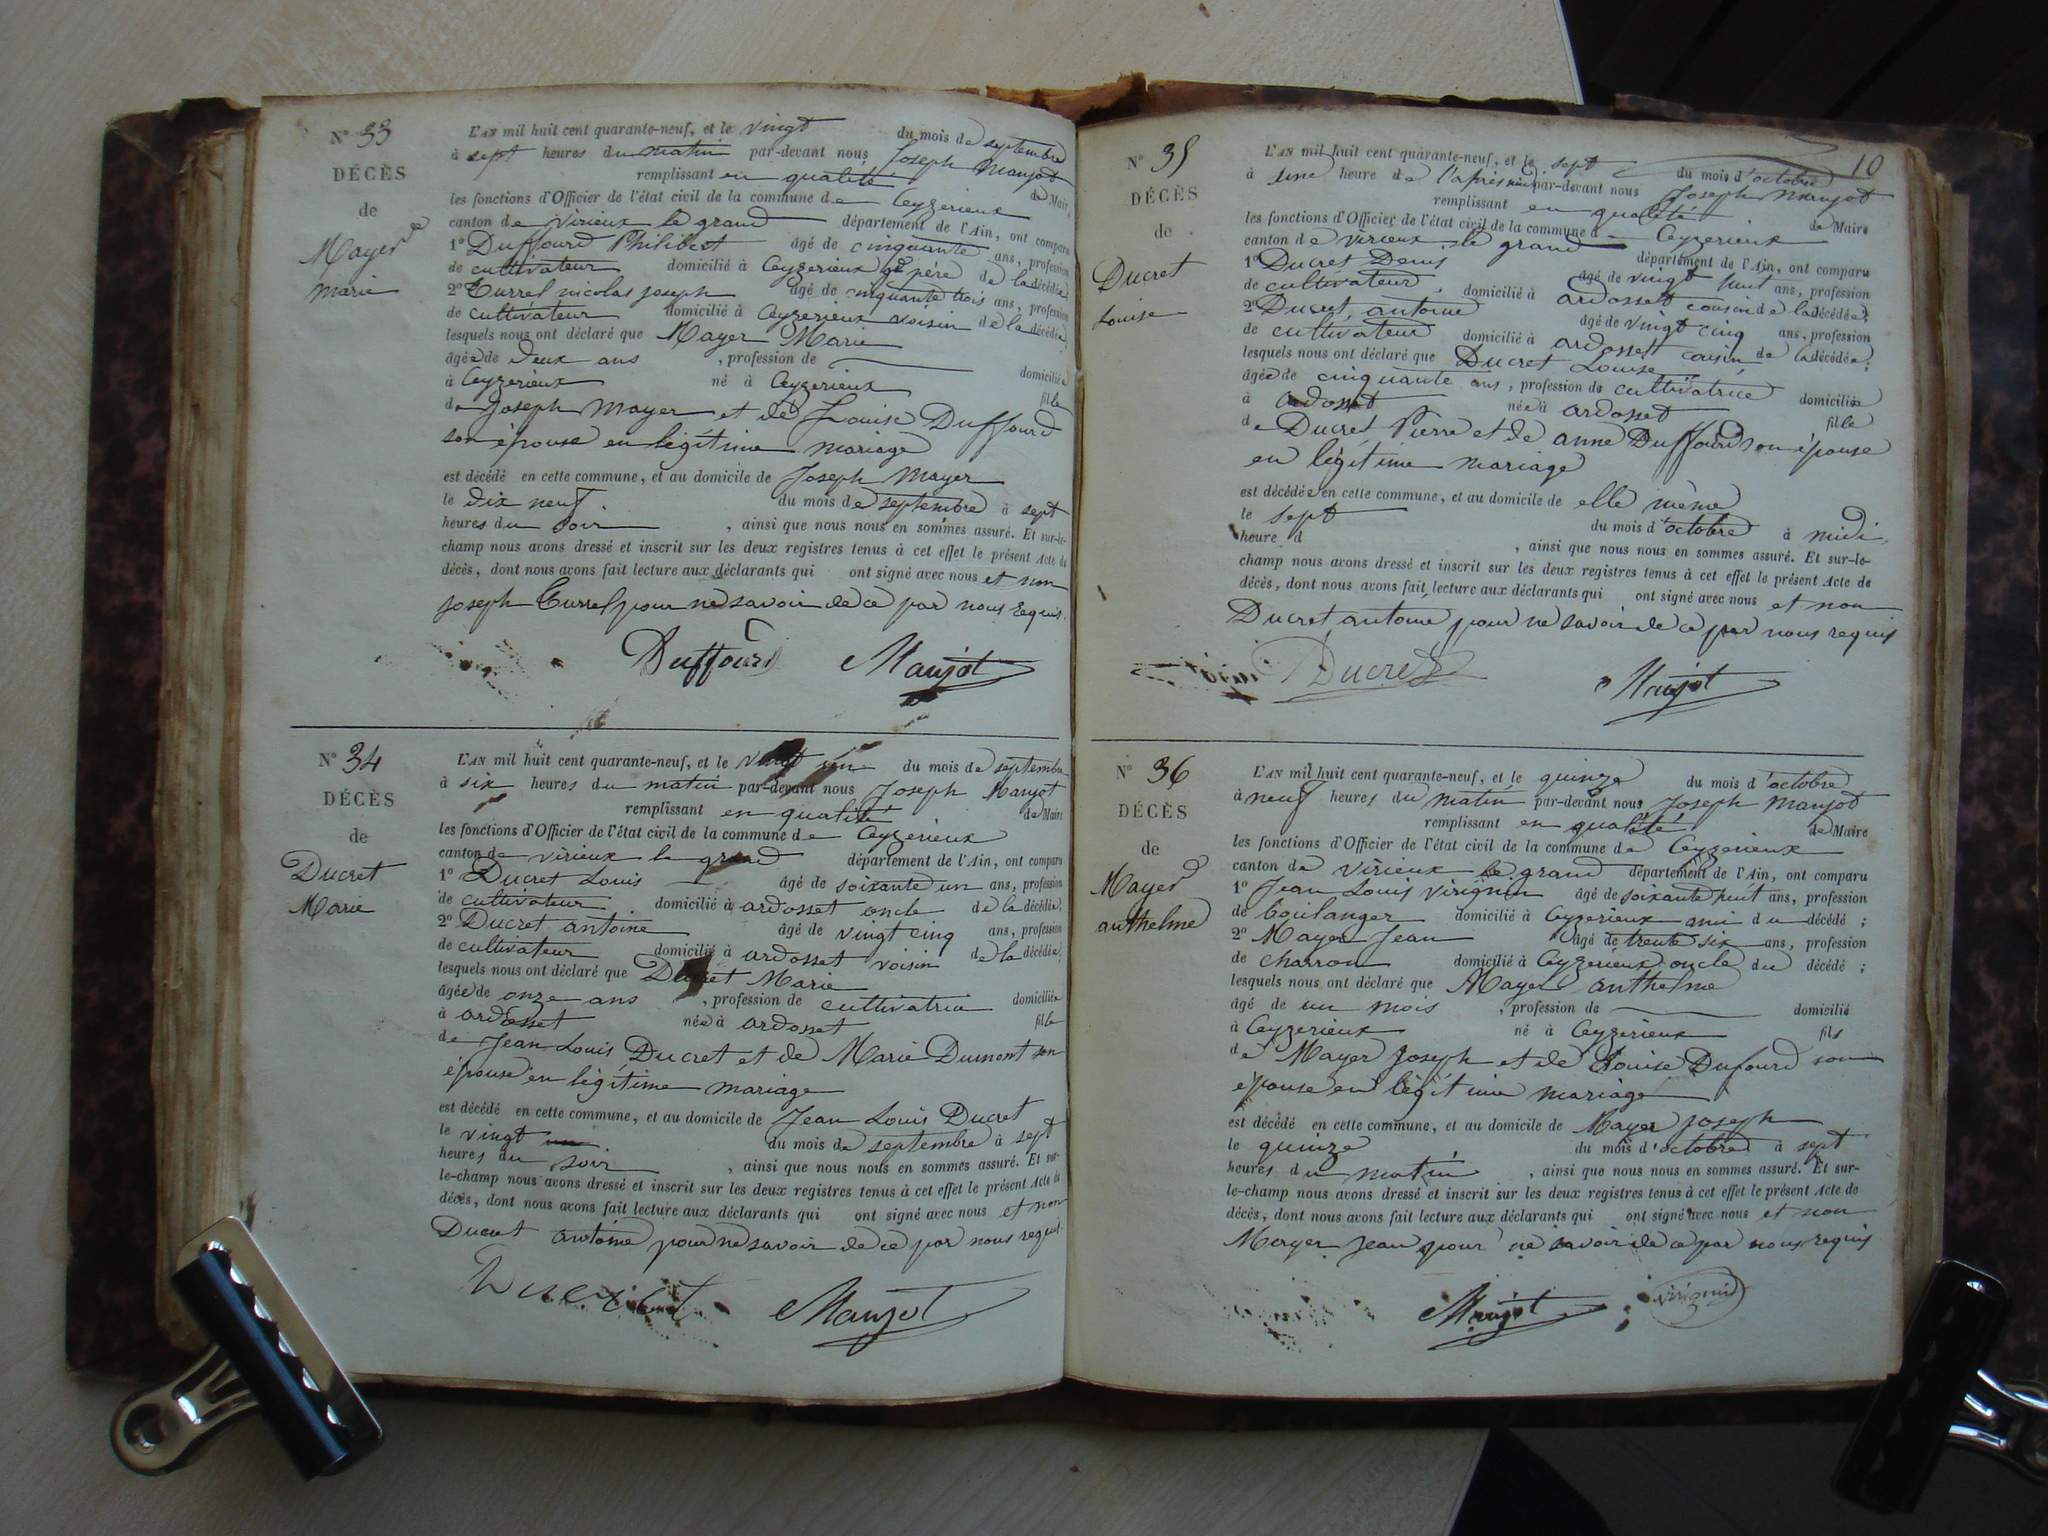 N° 33
DÉCÈS
de
Mayer
marie
L'AN mil huit cent quarante-neuf, et le vingt du mois de septembre
à sept heures du matin par-devant nous Joseph Manjot
remplissant en qualité de Maire
les fonctions d'Officier de l'état civil de la commune de Ceyzerieux
canton de virieux le grand département de l'Ain, ont comparu
1° Duffourd Philibert âgé de cinquante ans, profession
de cultivateur domicilié à Ceyzerieux gd père de la décédée
2° Turrel nicolas joseph âgé de cinquante trois ans, profession
de cultivateur domicilié à Ceyzerieux voisin de la décédée,
lesquels nous ont déclaré que Mayer Marie
âgée de deux ans , profession de domiciliée
à Ceyzerieux né à Ceyzerieux fille
de Joseph Mayer et de Louise Duffourd
son épouse en légitime mariage
est décédé en cette commune, et au domicile de Joseph Mayer
le dix neuf du mois de septembre à sept
heures du soir , ainsi que nous nous en sommes assuré. Et sur-le-
champ nous avons dressé et inscrit sur les deux registres tenus à cet effet le présent Acte de
décès, dont nous avons fait lecture aux déclarants qui ont signé avec nous et non
joseph Turrel pour ne savoir de ce par nous requis.
Duffourd Manjot
N° 34
DÉCÈS
de
Ducret
Marie
L'AN mil huit cent quarante-neuf, et le vingt un du mois de septembre
à six heures du matin par-devant nous Joseph Manjot
remplissant en qualité de Maire
les fonctions d'Officier de l'état civil de la commune de Ceyzerieux
canton de virieux le grand département de l'Ain, ont comparu
1° Ducret Louis âgé de soixante un ans, profession
de cultivateur domicilié à ardosset oncle de la décédée;
2° Ducret antoine âgé de vingt cinq ans, profession
de cultivateur domicilié à ardosset voisin de la décédée;
lesquels nous ont déclaré que Ducret Marie
âgée de onze ans , profession de cultivatrice domiciliée
à ardosset née à ardosset fille
de Jean Louis Ducret et de Marie Dumont son
épouse en légitime mariage
est décédé en cette commune, et au domicile de Jean Louis Ducret
le vingt un du mois de septembre à sept
heures du soir , ainsi que nous nous en sommes assuré. Et sur-
le-champ nous avons dressé et inscrit sur les deux registres tenus à cet effet le présent Acte de
décès, dont nous avons fait lecture aux déclarants qui ont signé avec nous et non
Ducret antoine pour ne savoir de ce par nous requis.
Ducret Manjot
10
N° 35
DÉCÈS
de
Ducret
Louise
L'AN mil huit cent quarante-neuf, et le sept du mois d'octobre
à une heure de l'après midi par-devant nous Joseph Manjot
remplissant en qualité de Maire
les fonctions d'Officier de l'état civil de la commune d Ceyzerieux
canton de virieux le grand département de l'Ain, ont comparu
1° Ducret Denis âgé de vingt huit ans, profession
de cultivateur, domicilié à ardosset cousin de la décédée;
2° Ducret, antoine âgé de vingt cinq ans, profession
de cultivateur domicilié à ardosset cousin de la décédée;
lesquels nous ont déclaré que Ducret Louise
âgée de cinquante ans, profession de cultivatrice domiciliée
à ardosset née à ardosset fille
de Ducret Pierre et de anne Duffourd son épouse
en légitime mariage
est décédée en cette commune, et au domicile de elle même
le sept du mois d'octobre à midi,
heure d , ainsi que nous nous en sommes assuré. Et sur-le-
champ nous avons dressé et inscrit sur les deux registres tenus à cet effet le présent Acte de
décès, dont nous avons fait lecture aux déclarants qui ont signé avec nous et non
Ducret, antoine pour ne savoir de ce par nous requis
Ducret Manjot
N° 36
DÉCÈS
de
Mayer
anthelme
L'AN mil huit cent quarante-neuf, et le quinze du mois d'octobre
à neuf heures du matin par-devant nous Joseph Manjot
remplissant en qualité de Maire
les fonctions d'Officier de l'état civil de la commune de Ceyzerieux
canton de virieux le grand département de l'Ain, ont comparu
1° Jean Louis virignin âgé de soixante huit ans, profession
de boulanger domicilié à Ceyzerieux ami du décédé ;
2° Mayer Jean âgé de trente six ans, profession
de charron domicilié à Ceyzerieux oncle du décédé ;
lesquels nous ont déclaré que Mayer anthelme
âgé de un mois , profession de domicilié
à Ceyzerieux né à Ceyzerieux fils
de Mayer Joseph et de Louise Dufourd son
épouse en légitime mariage
est décédé en cette commune, et au domicile de Mayer joseph
le quinze du mois d'octobre à sept
heures du matin , ainsi que nous nous en sommes assuré. Et sur-
le-champ nous avons dressé et inscrit sur les deux registres tenus à cet effet le présent Acte de
décès, dont nous avons fait lecture aux déclarants qui ont signé avec nous et non
Mayer jean pour ne savoir de ce par nous requis
Manjot virignin